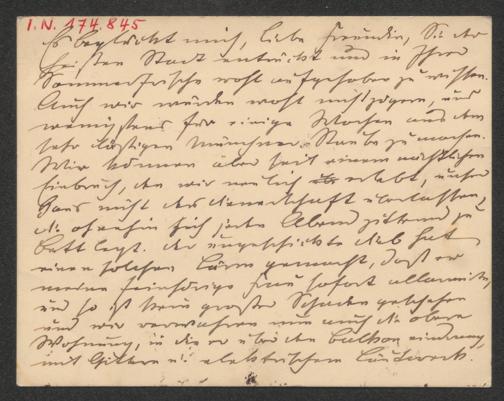 I. N. 174.845
Es beglückt mich, liebe Freundin, Sie der
heißen Stadt entrückt und in Ihrer
Sommerfrische wohl aufgehoben zu wissen.
Auch wir würden wohl nicht zögern, uns
wenigstens für einige Wochen aus dem
sehr Münchner Staube zu machen.
Wir können aber seit einem nächtlichen
Einbruch, den wir neulich erlebt, unser
Haus nicht der Dienerschaft überlassen,
die ohnehin sich jeden Abend zitternd zu
Bett legt. Der ungeschickte Dieb hat
einen solchen Lärm gemacht, daß er
meine feinhörige Frau sofort allarmirte,
und so ist kein großer Schaden geschehen
und wir verwahren nun auch die obere
Wohnung, in die er über den Balkon eindrang,
mit Gittern u. elektrischem Läutwerk.